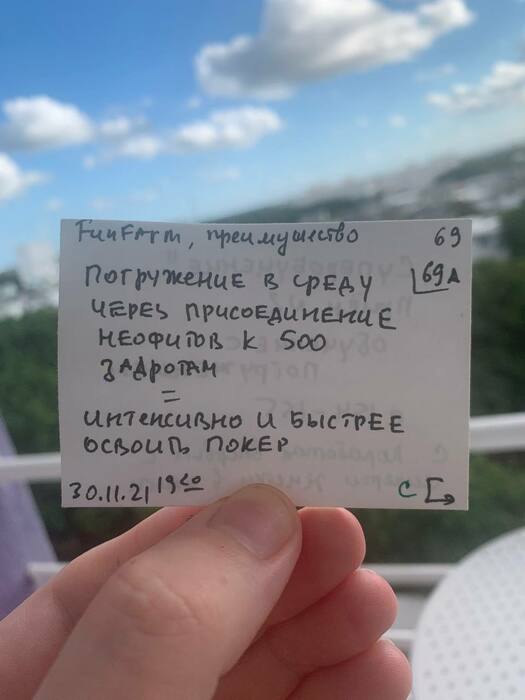 FunFarm, преимущество 69
69А
Погружение в среду
через присоединение
неофитов к 500
задротам
=
интенсивно и быстрее
освоить покер
30.11.21 19 20 С